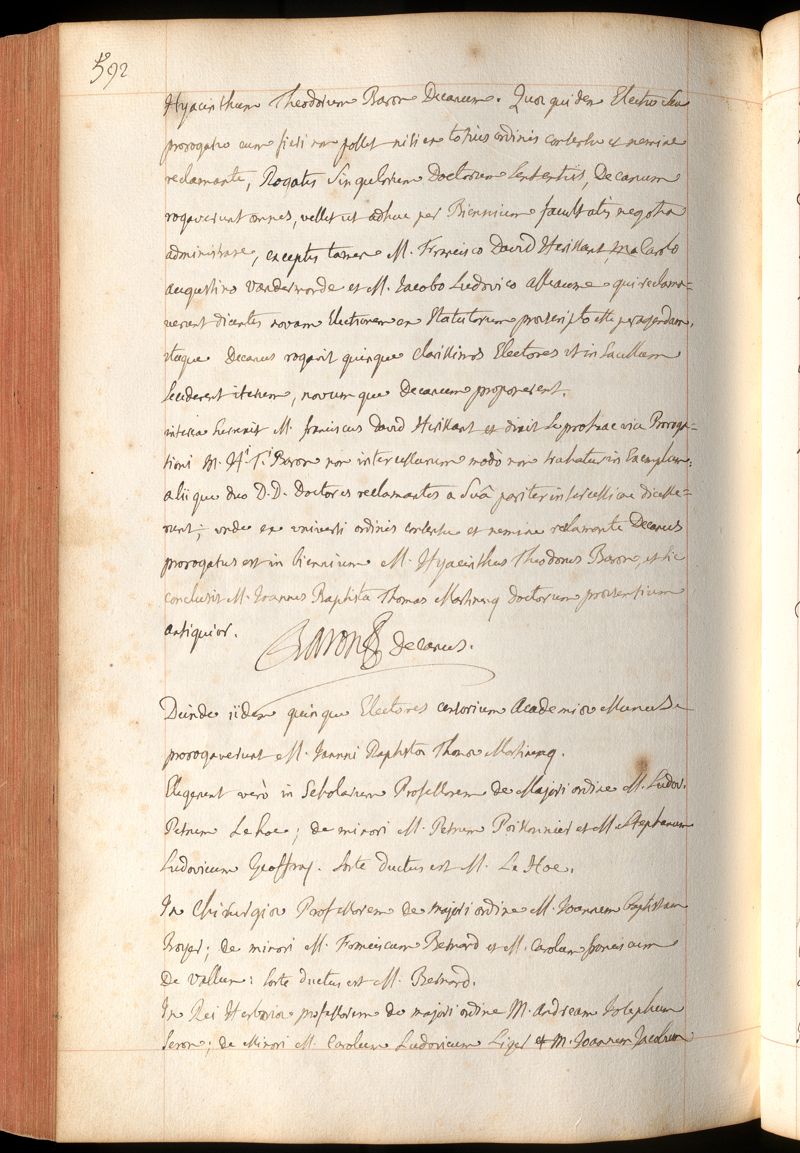 592
Hyacinthum Theodorum Baron Decanum. Quoi quidem Electio seu
prorogatio cum fieri non possit nisi ex totius ordinis consensu et nemine
reclamante, Rogatis singulorum Doctorum sententiis, Decanum
rogaverunt omnes, vellet ut adhuc per Biennium facultatis negotia
administrare, exceptis tamen M. Francisco David Herissant, M. Carolo
augustino Vandermonde et M. Jacobo Ludovico alleaume qui reclama-
verunt dicentes novam Electionem ex Statutorum praescripto esse peragendam.
itaque Decanus rogavit quinque clarissimos Electores ut in Sacellum
secederent iterum, novumque Decanum proponerent.
interea surrexit M. franciscus David Herissant et dixit se pro hac vice Proroga-
tioni M. Hi. Ti. Baron non intercessurum modò non trahatur in Exemplum:
alii que duo D.D. Doctores reclamantes a Suâ pariter intercessione discesse-
runt; unde ex universi ordinis consensu et nemine reclamante Decanus
prorogatus est in biennium M. Hyacinthus Theodorus Baron, et sic
conclusit M. Joannes Baptista Thomas Martinenq doctorum praesentium
antiquior.
Baron decanus.
Deinde iidem quinque Electores censorium Academiae Munus
prorogaverunt M. Joanni Baptistae Thomae Martinenq.
Elegerunt verò in Scholarum Professorem de Majori ordine M. Ludov.
Petrum Le hoc; de minori M. Petrum Poissonnier et M. Stephanum
Ludovicum Geoffroy. sorte ductus est M. Le Hoc.
In Chirurgiae Professorem de majori ordine M. Joannem Baptistam
Boyer; de minori M. Franciscum Bernard et M. Carolum franciscum
De Vallun: sorte ductus est M. Bernard.
In Rei Herbariae professorem de majori ordine M. Andream Josephum
Seron; de Minori M. Carolum Ludovicum Liger et M. Joannem Jacobum